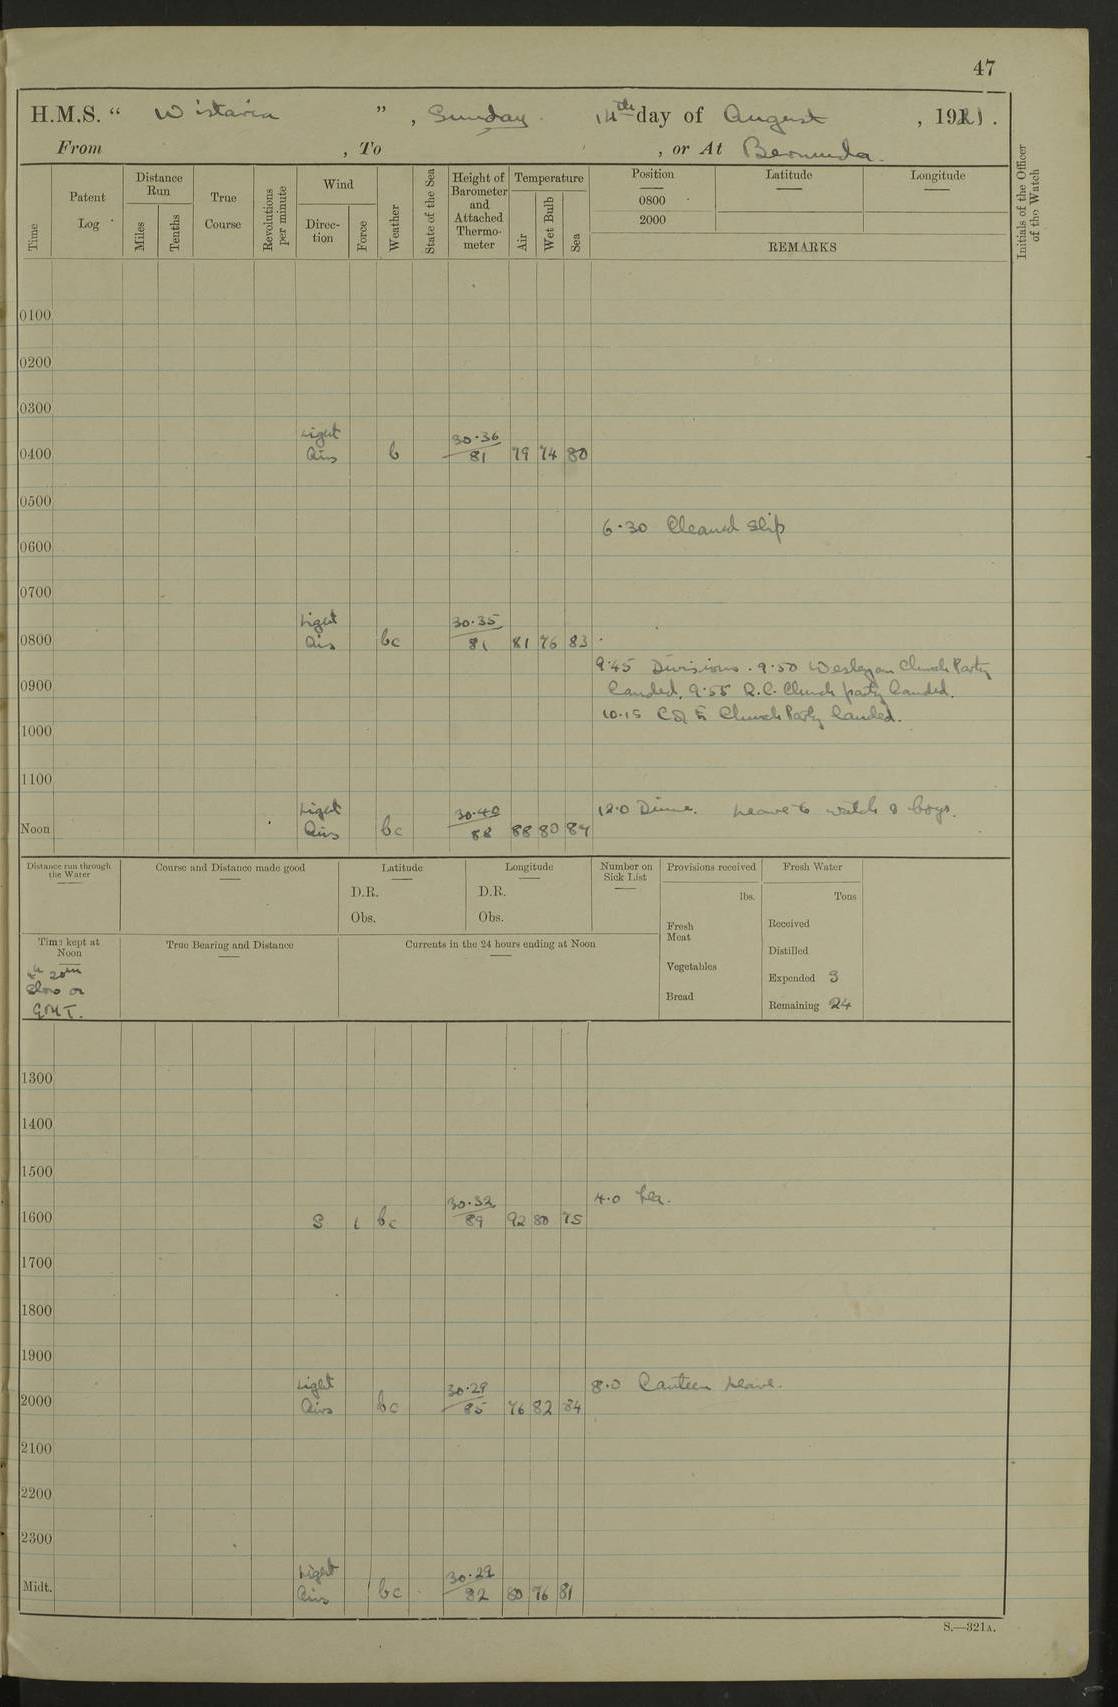 47
H.M.S. “ Wistaria ” , Sunday 14th day of August , 1921 .
From , To , or At Bermuda.
Time
Patent Log
Distance Run
Miles
Tenths
True Course
Revolutions per minute
Wind
Direction
Force
Weather
State of the Sea
Height of Barometer and Attached Thermometer
Temperature
Air
Wet Bulb
Sea
Position
0800
2000
Latitude
Longitude
REMARKS
Initials of the Officer of the Watch
0100
0200
0300
Light 30·36
0400 Airs b 81 79 74 80
0500
6·30 Cleaned Ship
0600
0700
Light 30·35
0800 Airs bc 81 81 76 83
9·45 Divisions. 9·50 Wesleyan Church Party
0900 landed. 9·55 R.C. Church party landed.
10·15 C of E Church Party landed.
1000
1100
Light 30·40 12·0 Dinner. Leave to watch & boys.
Noon Airs bc 88 88 80 84
Distance run through the Water
Course and Distance made good
Latitude
D.R.
Obs.
Longitude
D.R.
Obs.
Number on Sick List
Provisions received
lbs.
Fresh Meat
Vegetables
Bread
Fresh Water
Tons
Received
Distilled
Expended 3
Remaining 24
Time kept at Noon
4h 20m
slow on
GMT.
True Bearing and Distance
Currents in the 24 hours ending at Noon
1300
1400
1500
30·32 4·0 Tea.
1600 S 1 bc 89 92 80 75
1700
1800
1900
Light 30·29 8·0 Canteen leave.
2000 Airs bc 85 76 82 84
2100
2200
2300
Light 30·29
Midt. Airs bc 82 80 76 81
S.—321A.